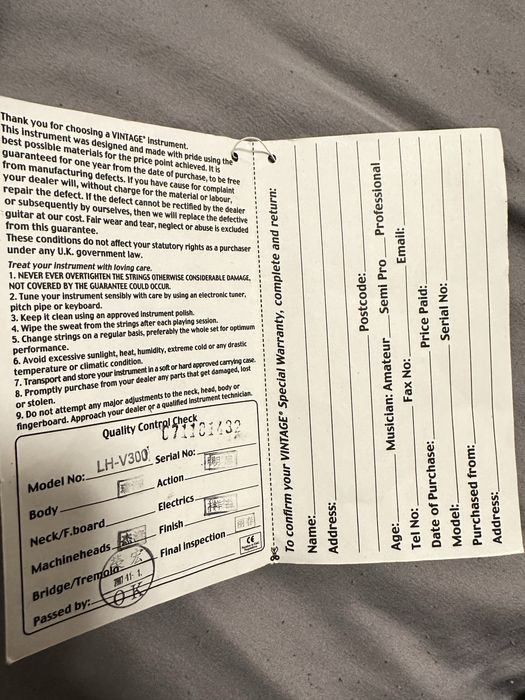 Thank you for choosing a VINTAGE® instrument.
This instrument was designed and made with pride using the
best possible materials for the price point achieved. It is
guaranteed for one year from the date of purchase, to be free
from manufacturing defects. If you have cause for complaint
your dealer will, without charge for the material or labour,
repair the defect. If the defect cannot be rectified by the dealer
or subsequently by ourselves, then we will replace the defective
guitar at our cost. Fair wear and tear, neglect or abuse is excluded
from this guarantee.
These conditions do not affect your statutory rights as a purchaser
under any U.K. government law.
Treat your instrument with loving care.
1. NEVER EVER OVERTIGHTEN THE STRINGS OTHERWISE CONSIDERABLE DAMAGE,
NOT COVERED BY THE GUARANTEE COULD OCCUR.
2. Tune your instrument sensibly with care by using an electronic tuner,
pitch pipe or keyboard.
3. Keep it clean using an approved instrument polish.
4. Wipe the sweat from the strings after each playing session.
5. Change strings on a regular basis, preferably the whole set for optimum
performance.
6. Avoid excessive sunlight, heat, humidity, extreme cold or any drastic
temperature or climatic condition.
7. Transport and store your instrument in a soft or hard approved carrying case.
8. Promptly purchase from your dealer any parts that get damaged, lost
or stolen.
9. Do not attempt any major adjustments to the neck, head, body or
fingerboard. Approach your dealer or a qualified instrument technician.
Quality Control Check
Model No: LH-V300 Serial No: C71101432
Body Action
Neck/F.board Electrics
Machineheads Finish
Bridge/Tremolo Final Inspection
Passed by: OK
CE
To confirm your VINTAGE® Special Warranty, complete and return:
Name:
Address:
Postcode:
Age: Musician: Amateur Semi Pro Professional
Tel No: Fax No: Email:
Date of Purchase: Price Paid:
Model: Serial No:
Purchased from:
Address: